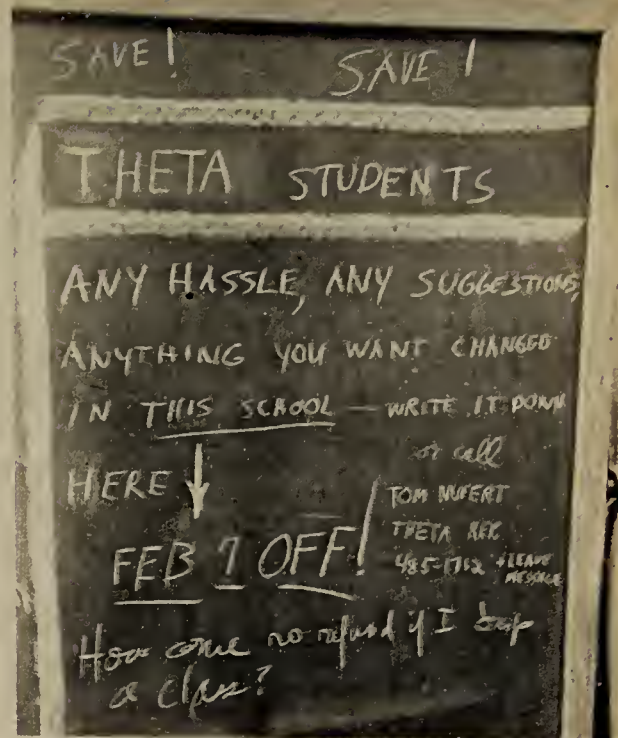 SAVE! SAVE!
THETA STUDENTS
ANY HASSLE, ANY SUGGESTIONS,
ANYTHING YOU WANT CHANGED
IN THIS SCHOOL — WRITE IT DOWN
or call
HERE ↓
TOM
THETA
485-1762 + LEAVE
MESSAGE
FEB 7 OFF!
How come no refund if I drop
a class?